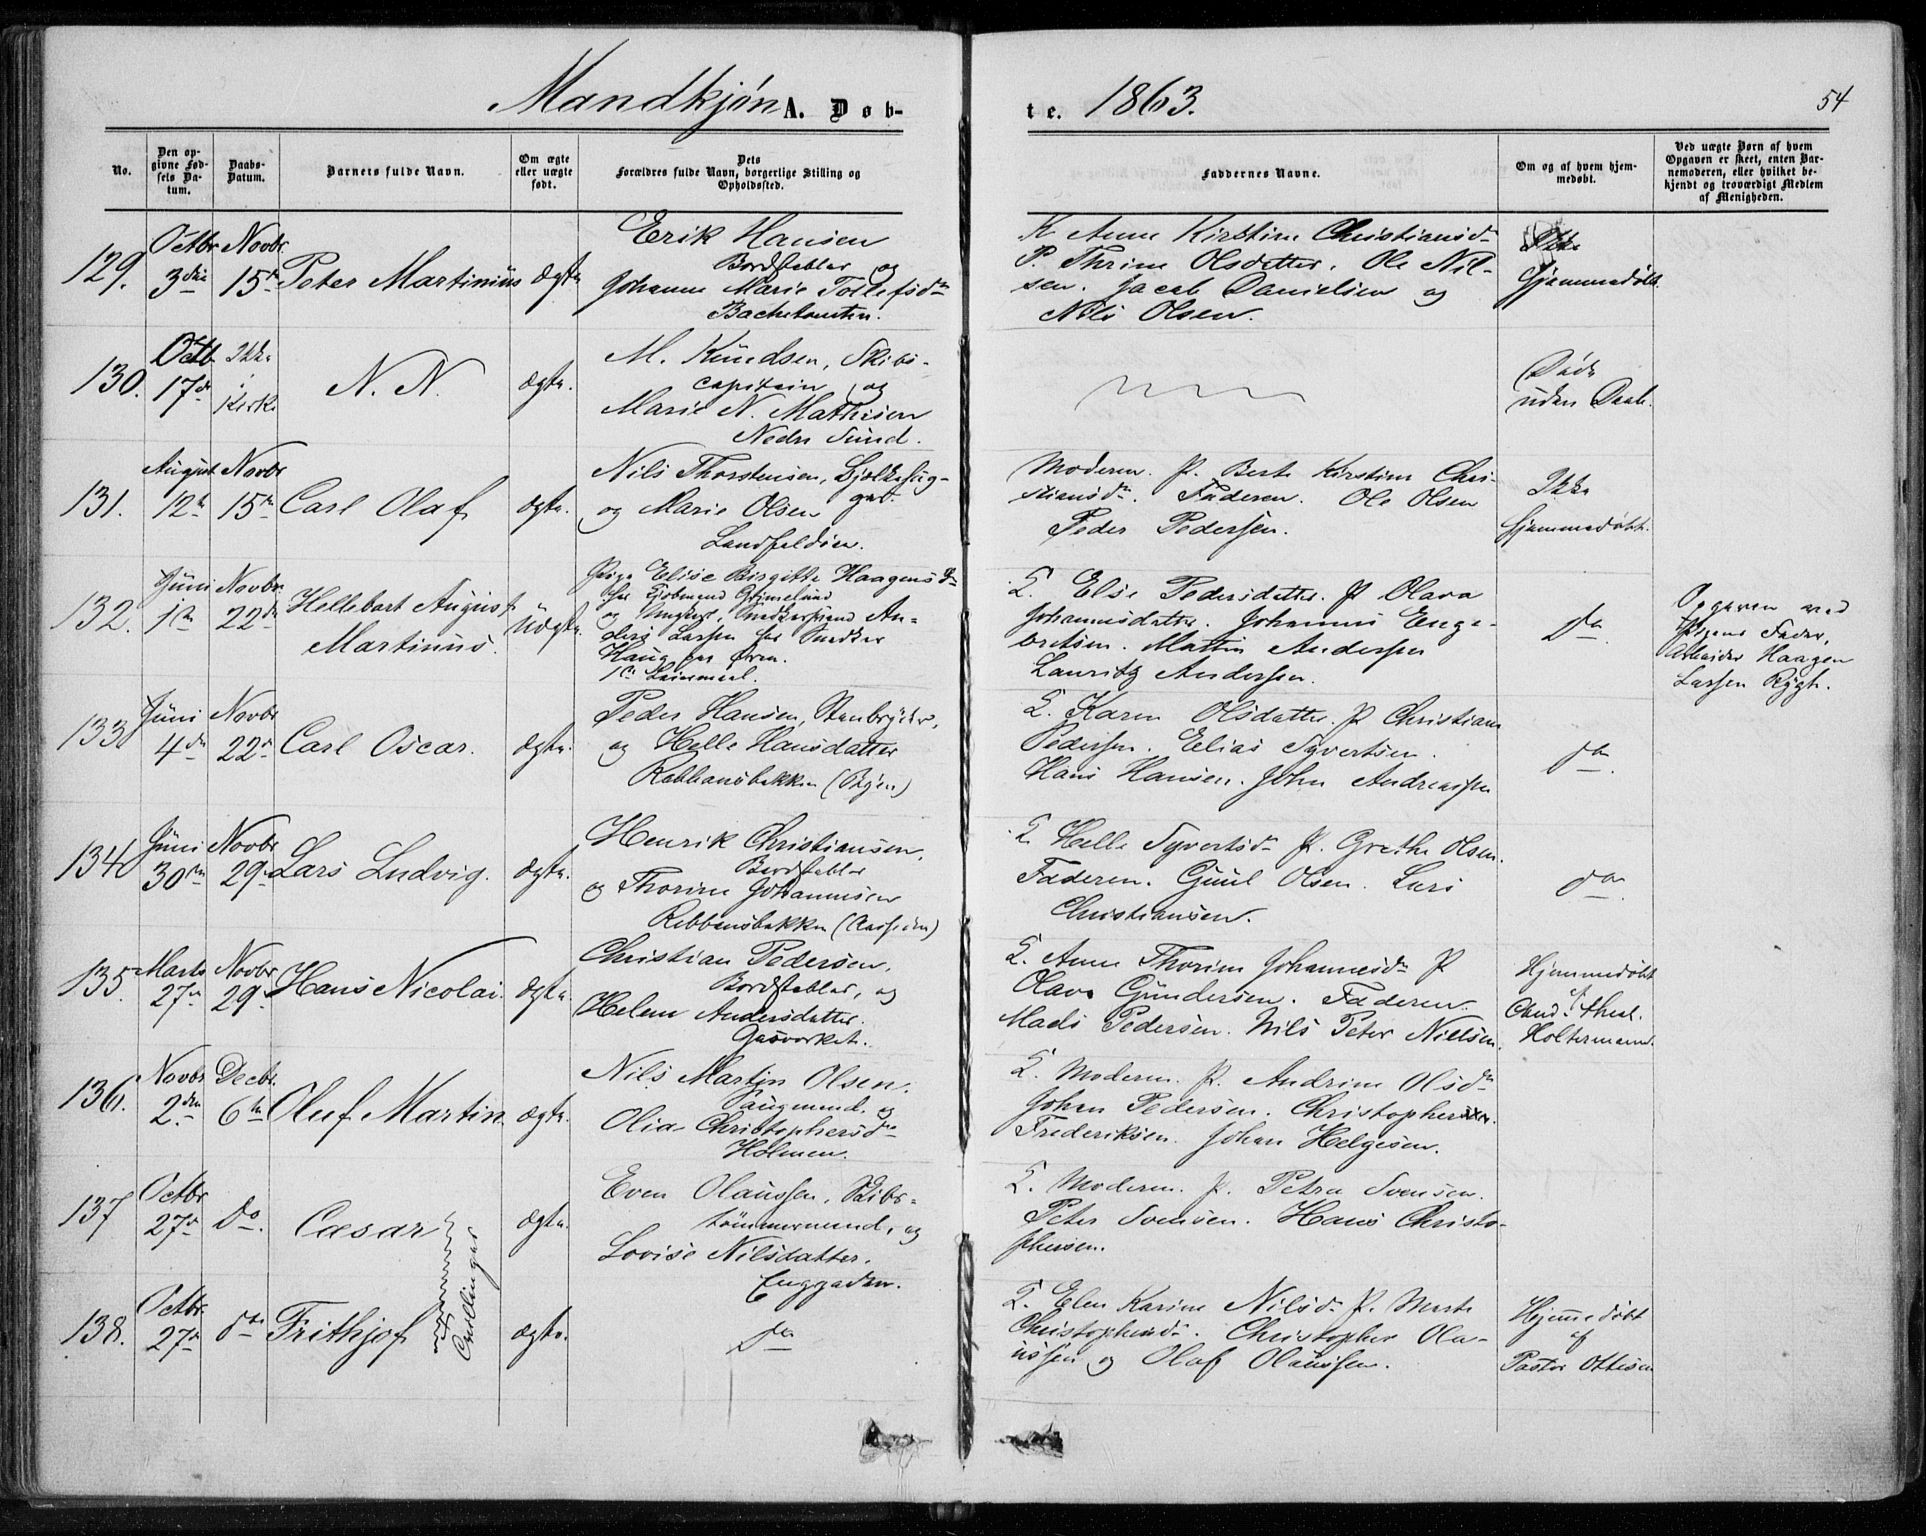 Mandkjøn A. Døb-
te. 1863.
54
No.
Den op-
givne Fød-
sels Da-
tum.
Daabs-
Datum.
Barnets fulde Navn.
Om ægte
eller uægte
født.
Dets
Forældres fulde Navn, borgerlige Stilling og
Opholdssted.
Faddernes Navne.
Om og af hvem hjem-
medøbt.
Ved uægte Børn af hvem
Opgaven er skeet, enten Bar-
nemoderen, eller hvilket be-
kjendt og troværdigt Medlem
af Menigheden.
129.
Octbr
3die
Novbr
15de
Peter Martinius
ægte
Erik Hansen
Bordstabler og
Johanne Marie Tollefsdr
K Anne Kirstine Christiansdr
P. Thrine Olsdatter. Ole Nil-
sen. Jacob Danielsen og
Nils Olsen.
Ikke
hjemmedøbt.
130.
Octb
17de
Ikke
i
Kirke
N. N.
ægte.
M. Knudsen, Skibs-
capitain og
Marie N. Mathisen
Nedre Sund.
Døde
uden Daab.
131.
August
12te
Novbr
15de
Carl Olaf
ægte.
Nils Thorstensen, Bjelkehug-
ger.
og Marie Olsen
Landfaldøen.
Moderen. P. Berte Kirstine Chri-
stiansdr. Faderen. Ole Olsen
Peder Pedersen.
Ikke
hjemmedøbt.
132.
Juni
1ste
Novbr
22de
Hellebart August
Martinius.
Uægte.
Pige Elise Birgitte Haagensdr
hos Kjøbmand Grimelund
og Ungkarl, Snedkersvend An-
ders Larsen hos Snedker
Haug paa Øren.
1ste Leiermaal.
L. Else Pedersdatter. P. Olava
Johannesdatter. Johannes Enge-
bretsen. Martin Andersen
Lauritz Andersen.
do
Opgaven ved
Pigens Fader,
Arbeider Haagen
Larsen Rygh.
133
Juni
4de
Novbr
22de
Carl Oscar.
ægte.
Peder Hansen, Stenbryder,
og Helle Hansdatter
Rabbansbakken (Skjøn)
L. Karen Olsdatter. P. Christiane
Pedersen. Elias Syvertsen.
Hans Hansen. John Andreassen
do.
134
Juni
30te
Novbr
29de
Lars Ludvig.
ægte.
Henrik Christiansen,
Bordstabler
og Thorine Johannesen
Rebbansbakken
L. Helle Syvertsdr P. Grethe Olsen.
Faderen. Guul Olsen. Lars
Christiansen.
do.
135.
Marts
27de
Novbr
29de
Hans Nicolai.
ægte.
Christian Pedersen,
Bordstabler, og
Helene Andersdatter.
Gasverket.
L. Anne Thorine Johannesdr P.
Olava Gundersen. Faderen.
Mads Pedersen. Nils Peter Nielsen.
Hjemmedøbt
af
Cand. theol.
Holtermann.
136.
Novbr
2den
Decbr.
6te
Oluf Martin.
ægte.
Nils Martin Olsen.
Saugmand, og
Olia Christophersdr
Holmen.
L. Moderen. P. Andrine Olsdr
Johan Pedersen. Christopher
Frederiksen. Johan Helgesen.
137
Octbr
27de
do.
Cæsar
Tvillinger
ægte.
Even Olaussen, Skibs-
tømmermand, og
Lovise Nilsdatter.
Enggaden.
L. Moderen. P. Petra Svensen.
Peter Svensen. Hans Christo-
phersen.
138.
Octbr.
27de
do
Frithjof
ægte.
do
L. Elen Karine Nilsdr P. Marte
Christophersdr. Christopher Ola-
ussen og Olaf Olaussen.
Hjemmedøbt
af
Pastor Ottesen